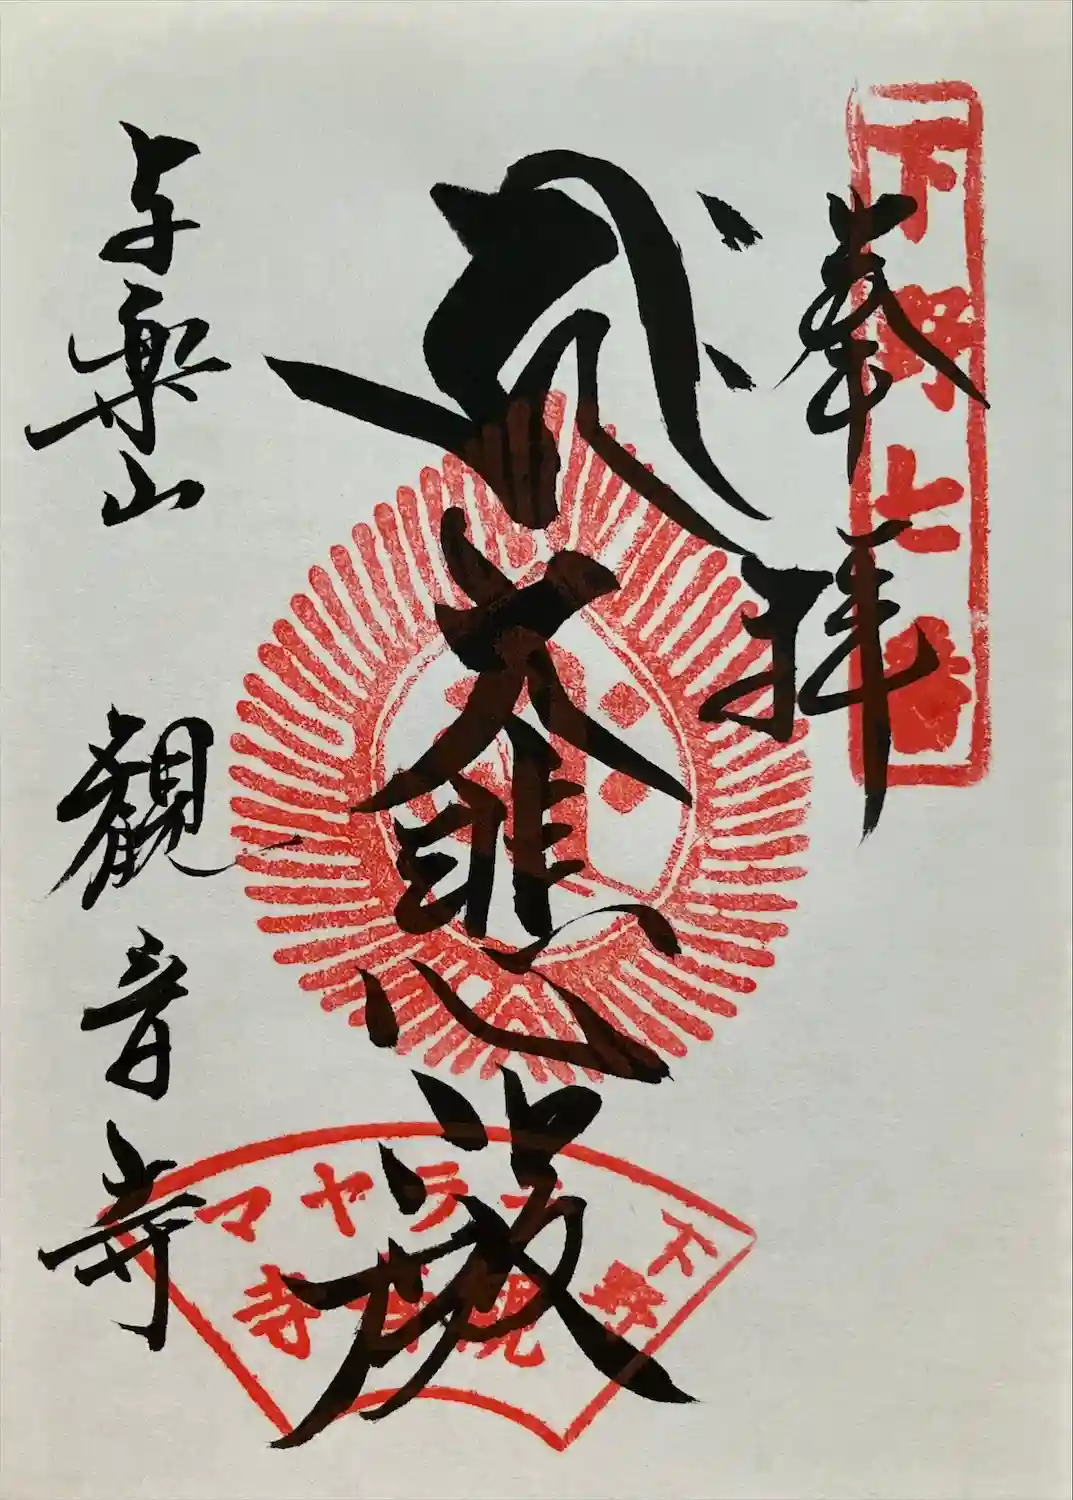 奉拝
下野七番
大悲殿
与楽山
観音寺
下野
テラヤマ
観音寺